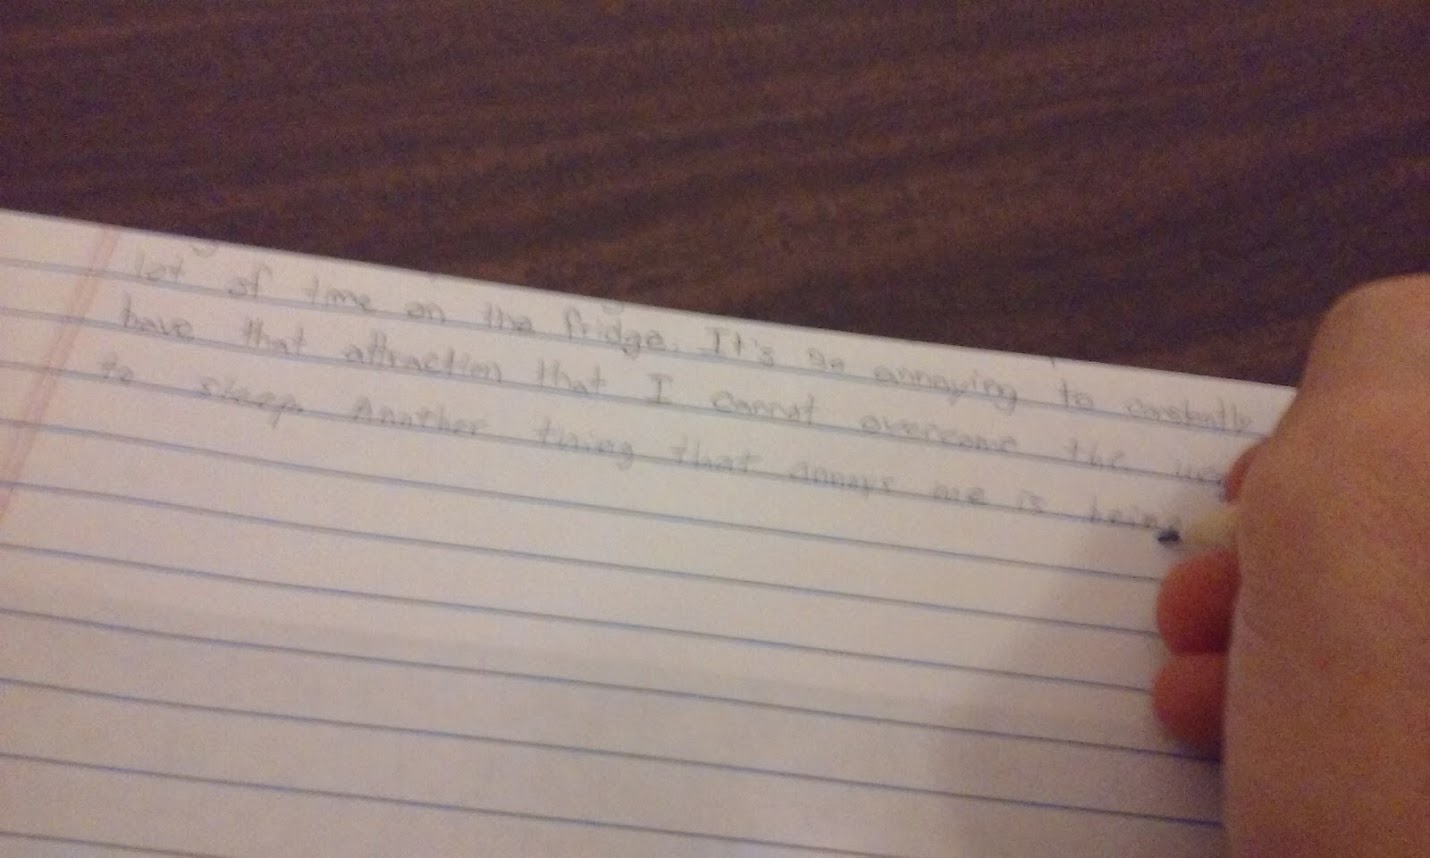 lot of time on the fridge. It's so annoying to constantly
have that attraction that I cannot overcome the
to sleep. Another thing that annoys me is being